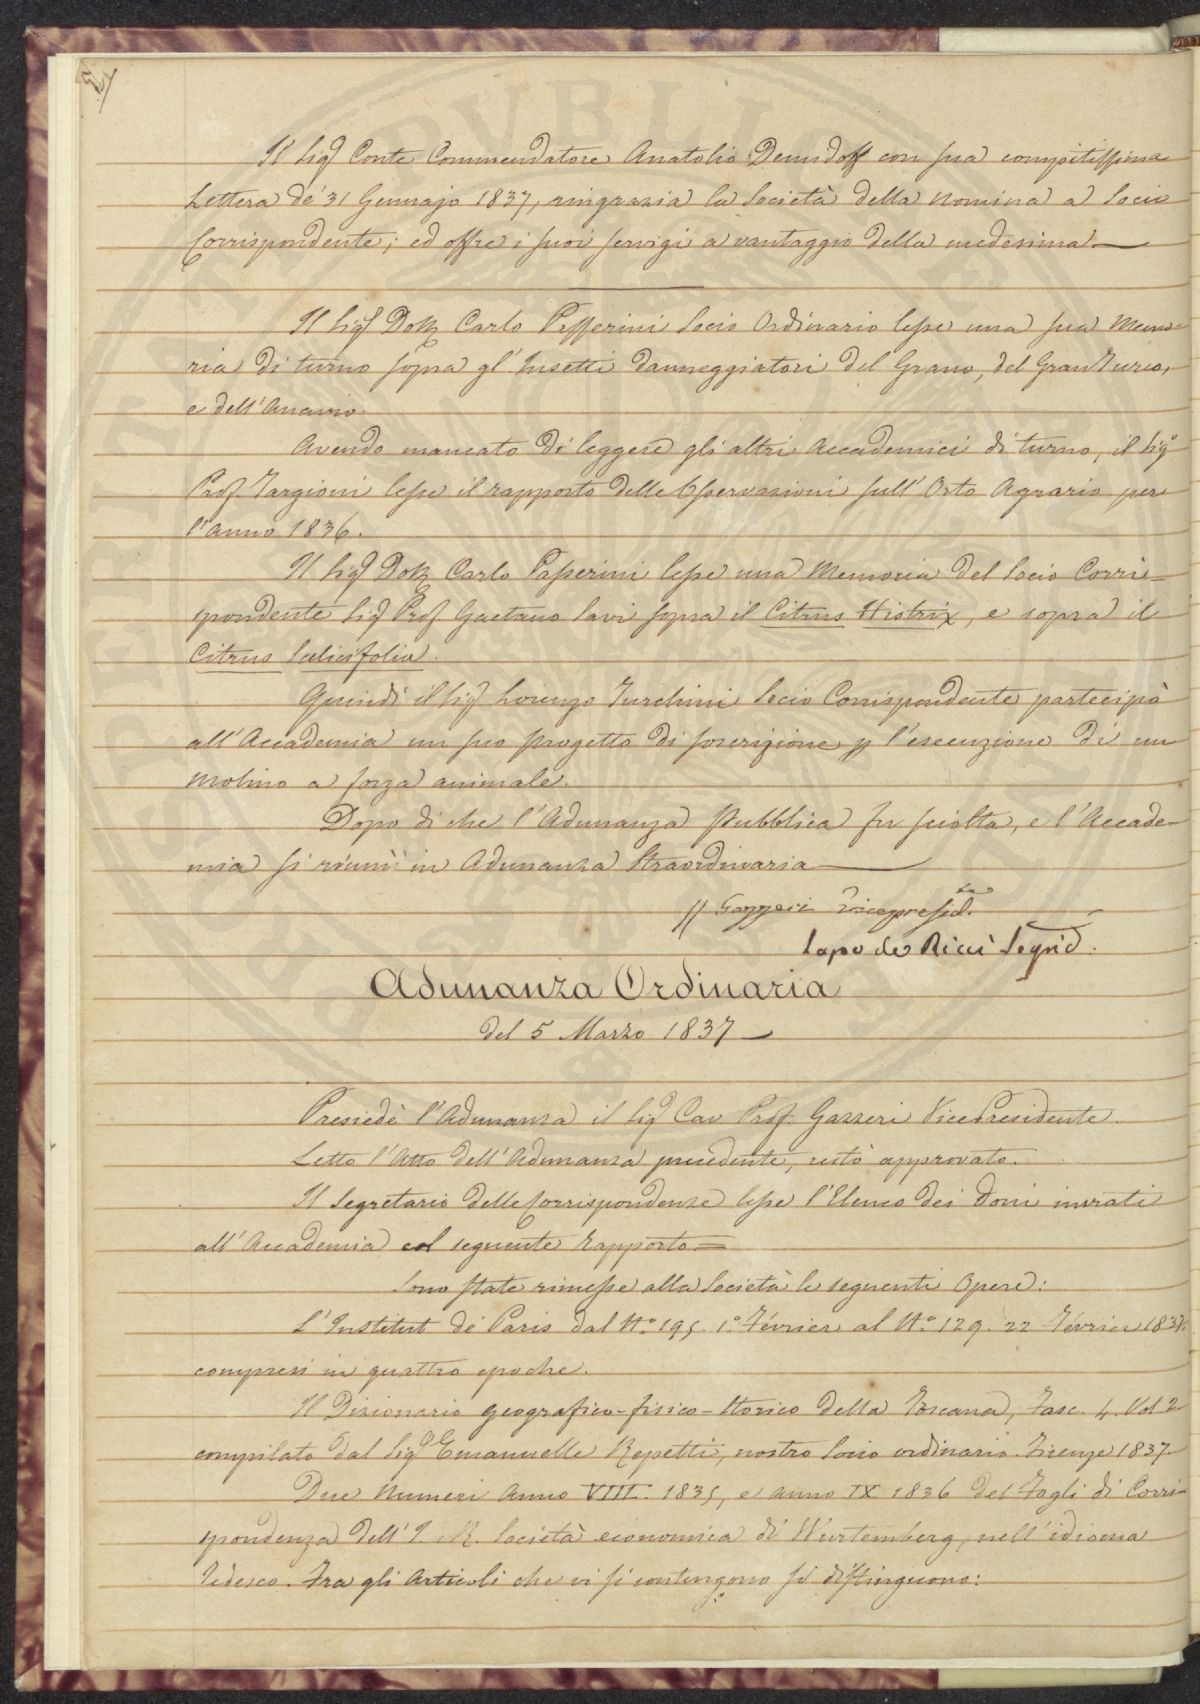 Il Sig.r Conte Commendatore Anatolio Demidoff con sua compitissima
Lettera de' 31 Gennajo 1837, ringrazia la Società della nomina a Socio
Corrispondente; ed offre i suoi servigi a vantaggio della medesima —
Il Sig.r Dott. Carlo Passerini Socio Ordinario lesse una sua Memo-
ria di turno sopra gl'Insetti danneggiatori del Grano, del GranTurco,
e dell'
Avendo mancato di leggere gli altri Accademici di turno, il Sig.r
Prof. Targioni lesse il rapporto delle Osservazioni sull'Orto Agrario per
l'anno 1836.
Il Sig.r Dott. Carlo Passerini lesse una Memoria del Socio Corri=
spondente Sig.r Prof. Gaetano Savi sopra il Citrus Histrix, e sopra il
Citrus Salicifolia.
Quindi il Sig.r Lorenzo Turchini Socio Corrispondente partecipò
all'Accademia un suo progetto di soscrizione p l'esecuzione di un
Molino a forza animale.
Dopo di che l'Adunanza Pubblica fu sciolta, e l'Accade-
mia si riunì in Adunanza Straordinaria —
Gazzeri Vicepresid.
Lapo de Ricci Seg.rio d.
Adunanza Ordinaria
del 5 Marzo 1837 —
Presiedè l'Adunanza il Sig.r Cav Prof. Gazzeri VicePresidente.
Letto l'Atto dell'Adunanza precedente, restò approvato.
Il Segretario delle Corrispondenze lesse l'Elenco dei doni inviati
all'Accademia col seguente Rapporto =
Sono state rimesse alla Società le seguenti Opere:
L'Institut de Paris dal N.o 195. 1.o Février al N.o 129. 22 Février 1837.
compresi in quattro epoche.
Il Dizionario geografico-fisico-Storico della Toscana, Fasc. 4. Vol 2
compilato dal Sig.r Emanuelle Repetti, nostro Socio ordinario. Firenze 1837.
Due Numeri Anno VIII. 1835, e anno IX 1836 del Fogli di Corri-
spondenza dell'I. R. Società economica di Würtemberg, nell'idioma
Tedesco. Fra gli Articoli che vi si contengono si distinguono: